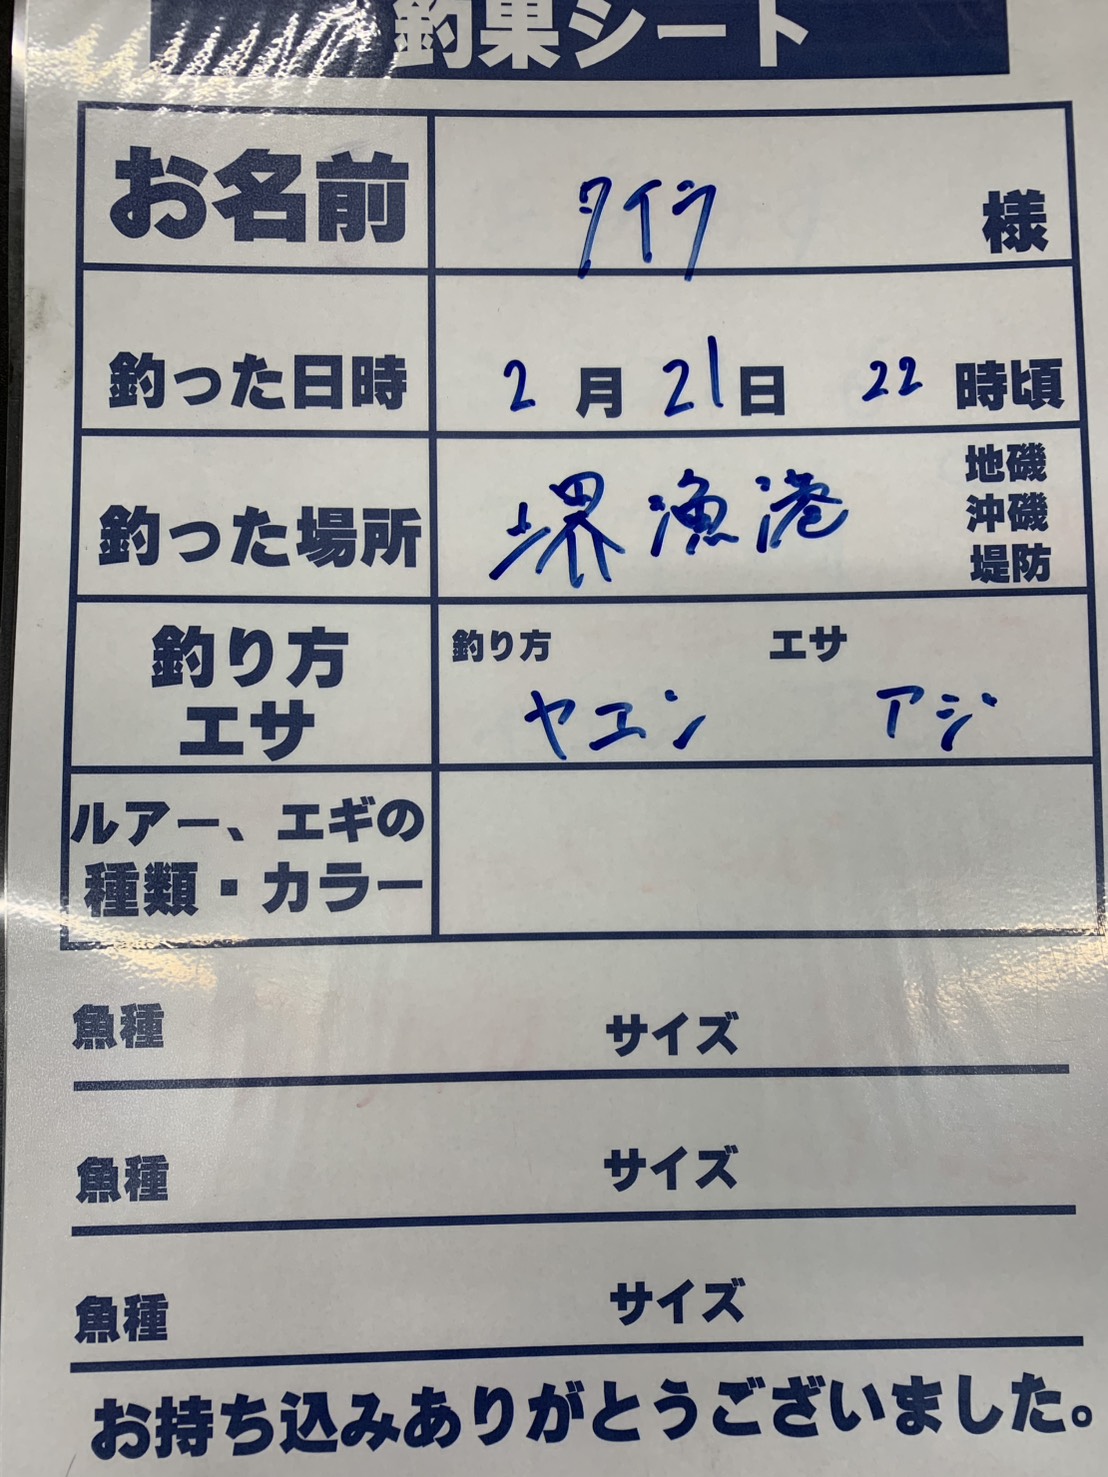 釣果シート
お名前 タイラ 様
釣った日時 2月21日 22時頃
釣った場所 堺漁港 地磯
沖磯
堤防
釣り方 釣り方 エサ
エサ ヤエン アジ
ルアー、エギの
種類・カラー
魚種 サイズ
魚種 サイズ
魚種 サイズ
お持ち込みありがとうございました。